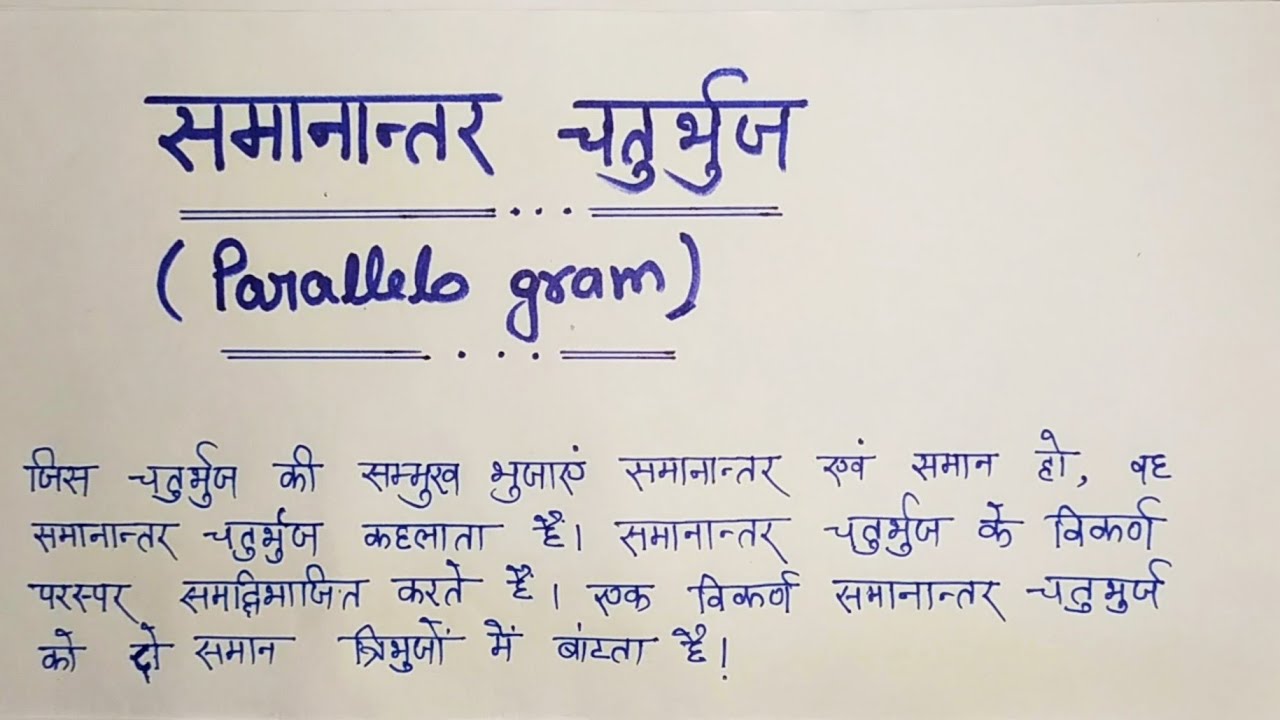 समानान्तर चतुर्भुज
(Parallelo gram)
जिस चतुर्भुज की सम्मुख भुजाएं समानान्तर एवं समान हो, वह
समानान्तर चतुर्भुज कहलाता है। समानान्तर चतुर्भुज के विकर्ण
परस्पर समद्विभाजित करते है। एक विकर्ण समानान्तर चतुभुर्ज
को दो समान त्रिभुजों में बांटता है।